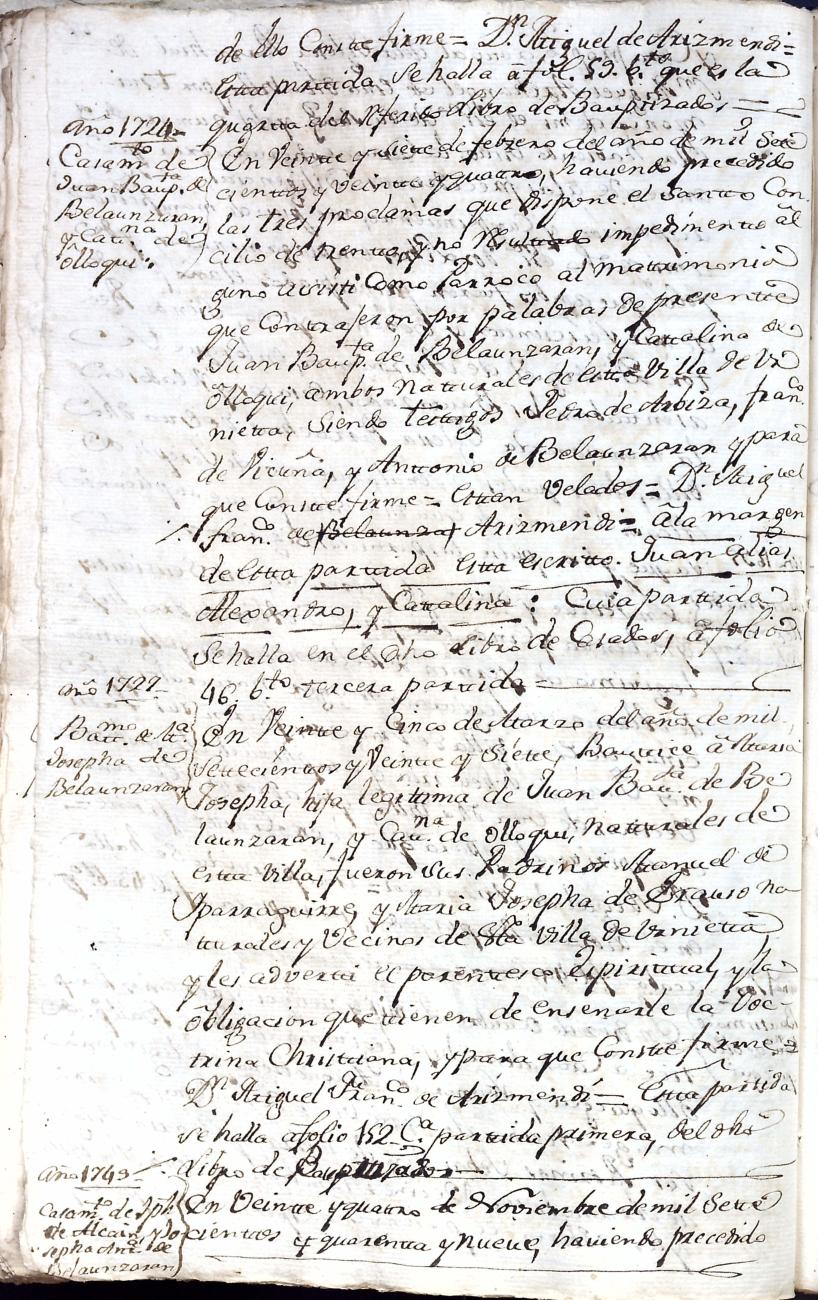 de ello Conste firme = Dn. Miguel de Arizmendi =
Esta partida se halla â fol. 59. bto. que es la
quarta del referido Libro de Bauptizados =
año 1724
Casamto. de
Juan Baupta. de
Belaunzaran,
y Catna. de
ôlloqui.
En Veinte y siete de febrero del año de mil Sete
cientos y veinte y quatro, haviendo precedido
las tres proclamas que dispone el Santo Con
cilio de trento, y no resultado impedimento âl
guno asisti Como Parroco al matrimonio
que Contrajeron por palabras de presente
Juan Baupta. de Belaunzaran, y Cattalina de
ôlloqui, ambos Naturales de esta Villa de Vr
nieta, Siendo testigos Pedro de Arbiza, frano.
de Vicuña, y Antonio de Belaunzaran y para
que Conste firme = Estan Velados = Dn. Miguel
frano. de Belaunza Arizmendi = â la margen
de esta partida esta escritto. Juan alias
Alexandro, y Cattalina : Cuia partida
Se halla en el dho Libro de Casados, â folio
46. bto. tercera partida =
año 1727
Batmo. de Ma.
Josepha de
Belaunzaran
En Veinte y Cinco de Marzo del año de mil
Setecientos y Veinte y Siete, Bautice â Maria
Josepha, hija legittima de Juan Bauta. de Be
launzaran, y Catna. de olloqui, naturales de
esta Villa, fueron sus Padrinos Manuel de
Yparraguirre, y Maria Josepha de Erauso na
turales y Vecinos de Esta Villa de Vrnieta
y les adverti el parentesco Espiritual, y la
ôbligacion que tienen de enseñarle la Doc-
trina Christiana, y para que Conste firme =
Dn. Miguel Frano. de Arizmendi = Esta partida
se halla afolio 152. Ca. partida primera, del dho
Libro de Bauptizados
año 1749
Casamto. de Jph.
de Alcain, y Jo
sepha Anta. de
Belaunzaran
En Veinte y quatro de Noviembre de mil Sete
cientos y quarenta y nueve, haviendo precedido